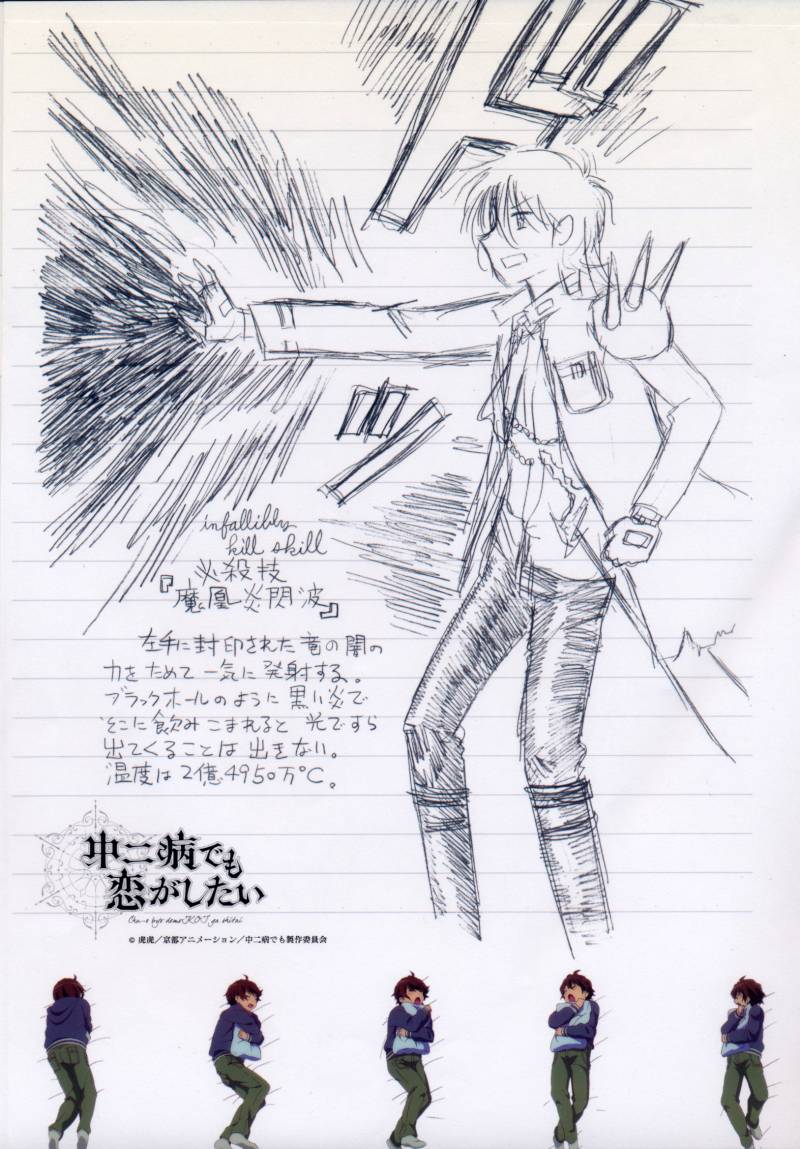 infallibly
kill skill
必殺技
『魔凰炎閃波』
左手に封印された竜の闇の
力をためて一気に発射する。
ブラックホールのように黒い炎で
そこに飲みこまれると光ですら
出てくることは出きない。
温度は2億4950万℃。
中二病でも
恋がしたい
Chu-2 byo demo KOI ga shitai
© 虎虎／京都アニメーション／中二病でも製作委員会